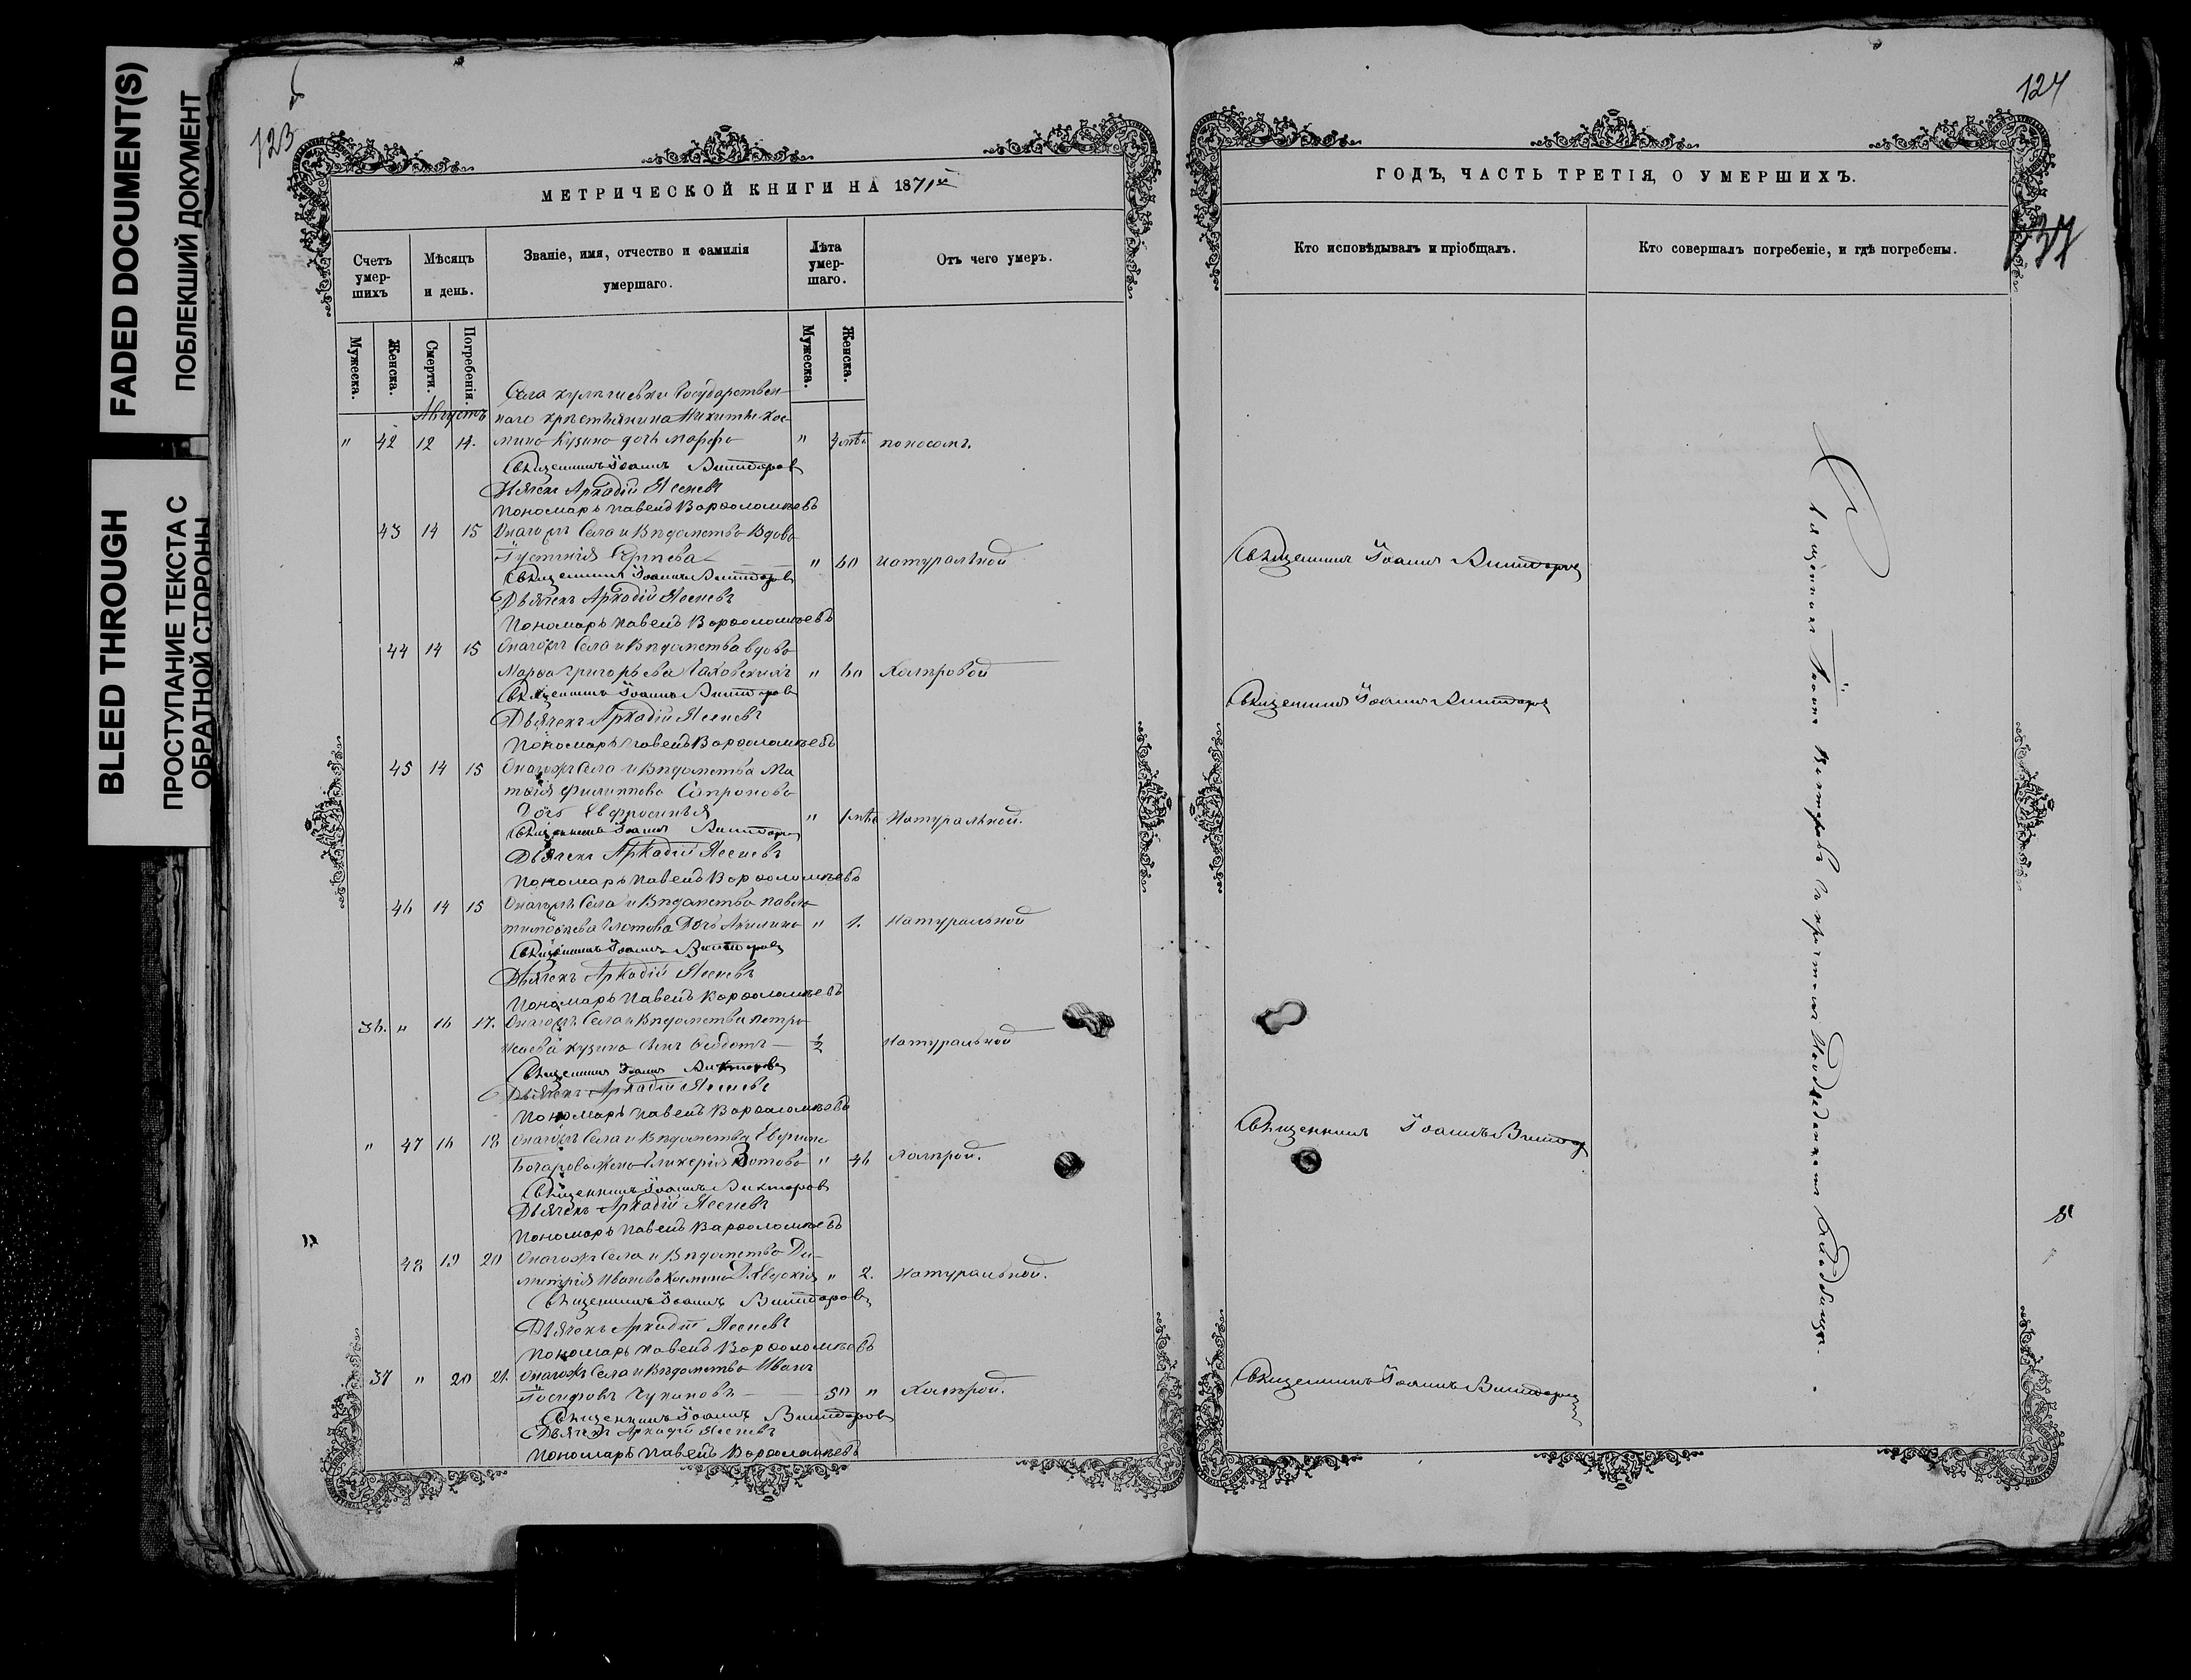 FADED DOCUMENT(S)
ПОБЛЕКШИЙ ДОКУМЕНТ
BLEED THROUGH
ПРОСТУПАНИЕ ТЕКСТА С
ОБРАТНОЙ СТОРОНЫ
123
124
137
МЕТРИЧЕСКОЙ КНИГИ НА 1871й
Счетъ умер-шихъ
Мѣсяцъ и день.
Званіе, имя, отчество и фамилія
умершаго.
Лѣта умер-шаго.
Отъ чего умеръ.
Мужеска.
Женска.
Смерти.
Погребенія.
Мужеска.
Женска.
Села Государствен-
Августъ наго крестьянина Никиты Кос-
" 42 12 14. мина Кузина дочь Марфа " поносомъ.
Священникъ Іоаннъ Викторовъ
Дьячекъ Аркадій Ясеневъ
Пономарь Павелъ Варфоломѣевъ
43 14 15 Онагожъ Села и Вѣдомства Вдова
Іустинія " 60 натуральной
Священникъ Іоаннъ Викторовъ
Дьячекъ Аркадій Ясеневъ
Пономарь Павелъ Варфоломѣевъ
44 14 15 Онагожъ Села и Вѣдомства вдова
Марфа Григорьева " 60
Священникъ Іоаннъ Викторовъ
Дьячекъ Аркадій Ясеневъ
Пономарь Павелъ Варфоломѣевъ
45 14 15 Онагожъ Села и Вѣдомства Ма
Филиппова Сапронова
Дочь Евфросинья " Натуральной.
Священникъ Іоаннъ Викторовъ
Дьячекъ Аркадій Ясеневъ
Пономарь Павелъ Варфоломѣевъ
46 14 15 Онагожъ Села и Вѣдомства Павла
Тимофеева Дочь Акилина " 1. Натуральной
Священникъ Іоаннъ Викторовъ
Дьячекъ Аркадій Ясеневъ
Пономарь Павелъ Варфоломѣевъ
36. " 16 17. Онагожъ Села и Вѣдомства Петра
Исаева Кузина Сынъ Феодотъ ½ Натуральной
Священникъ Іоаннъ Викторовъ
Дьячекъ Аркадій Ясеневъ
Пономарь Павелъ Варфоломѣевъ
" 47 16 18 Онагожъ Села и Вѣдомства
Бочарова жена Гликерія Зотова " 46
Священникъ Іоаннъ Викторовъ
Дьячекъ Аркадій Ясеневъ
Пономарь Павелъ Варфоломѣевъ
48 19 20 Онагожъ Села и Вѣдомства Ди-
митрія Иванова Космина Д. Евдокія " 2. Натуральной.
Священникъ Іоаннъ Викторовъ
Дьячекъ Аркадій Ясеневъ
Пономарь Павелъ Варфоломѣевъ
37 " 20 21. Онагожъ Села и Вѣдомства Иванъ
Іосифовъ 50 "
Священникъ Іоаннъ Викторовъ
Дьячекъ Аркадій Ясеневъ
Пономарь Павелъ Варфоломѣевъ
ГОДЪ, ЧАСТЬ ТРЕТІЯ, О УМЕРШИХЪ.
Кто исповѣдывалъ и пріобщалъ.
Кто совершалъ погребеніе, и гдѣ погребены.
Священникъ Іоаннъ Викторовъ
Священникъ Іоаннъ Викторовъ
Священникъ Іоаннъ Викторовъ
Священникъ Іоаннъ Викторовъ
Священникъ Іоаннъ Викторовъ съ причтомъ кладбищѣ.